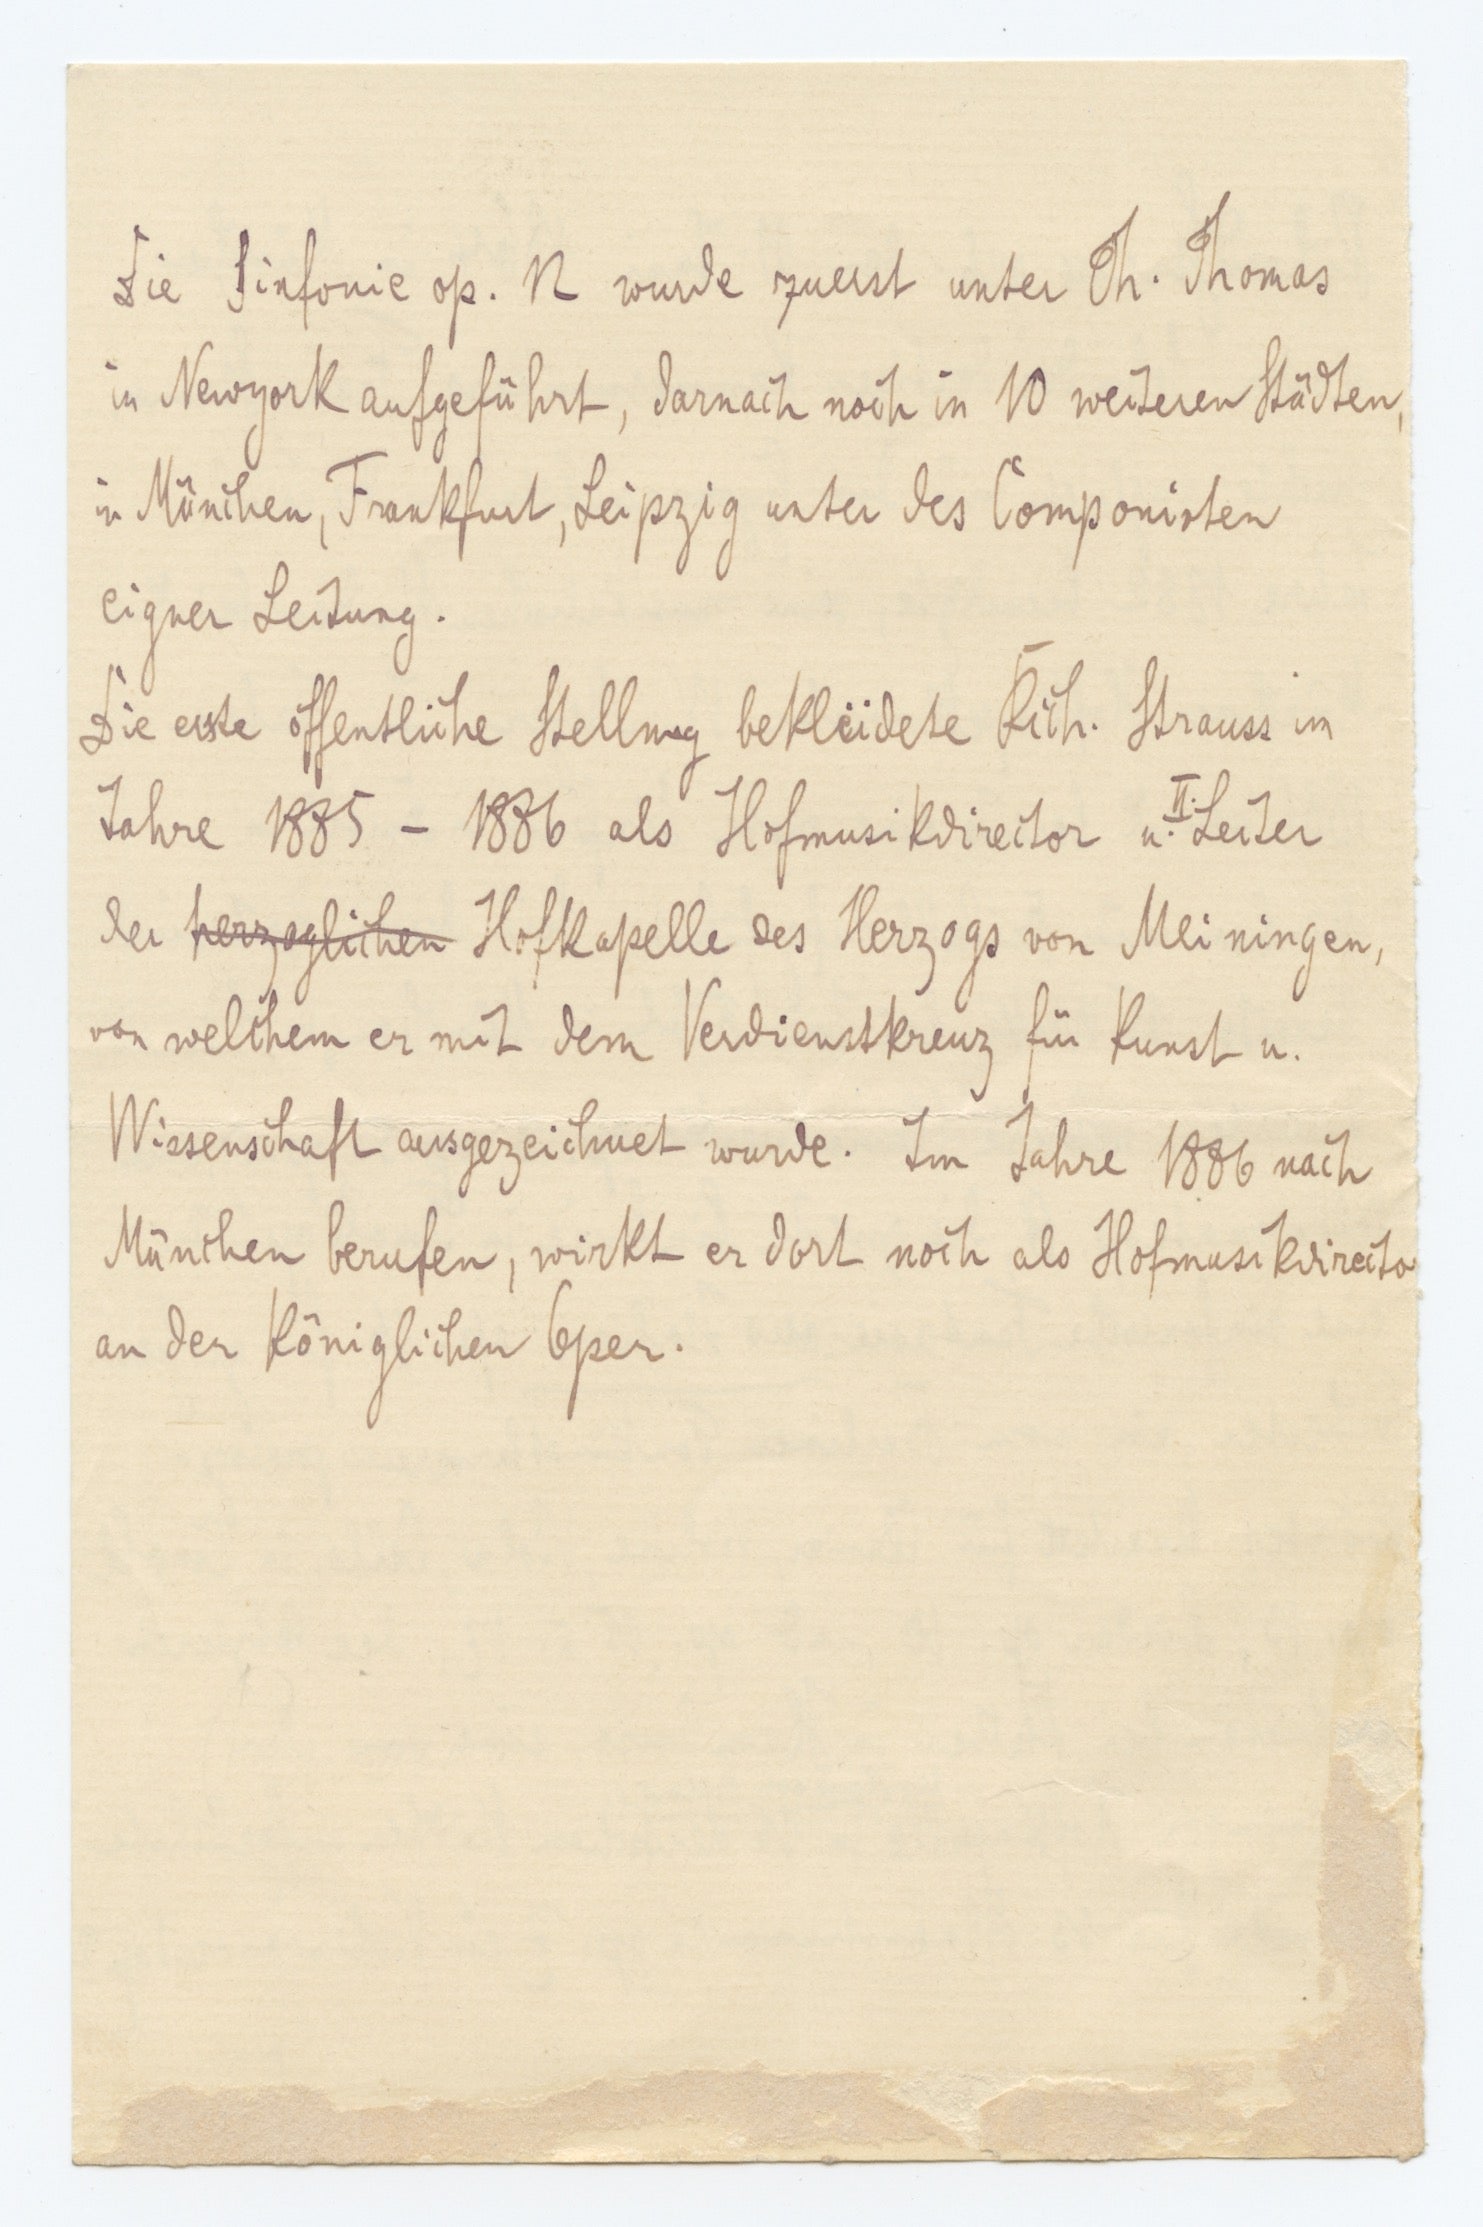 Die Sinfonie op. 12 wurde zuerst unter Th. Thomas
in Newyork aufgeführt, darnach noch in 10 weiteren Städten,
in München, Frankfurt, Leipzig unter des Componisten
eigner Leitung.
Die erste öffentliche Stellung bekleidete Rich. Strauss im
Jahre 1885 – 1886 als Hofmusikdirector u. II. Leiter
der herzoglichen Hofkapelle des Herzogs von Meiningen,
von welchem er mit dem Verdienstkreuz für Kunst u.
Wissenschaft ausgezeichnet wurde. Im Jahre 1886 nach
München berufen, wirkt er dort noch als Hofmusikdirector
an der Königlichen Oper.